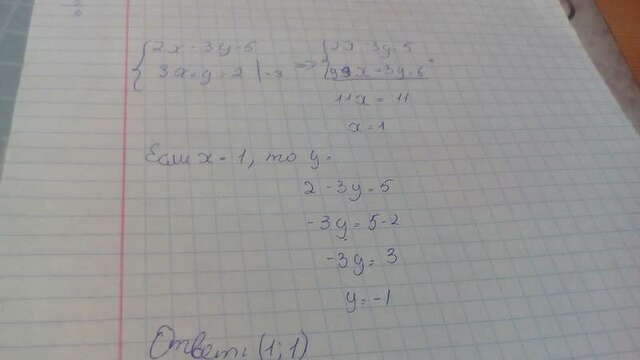 {2x - 3y = 5 => {2x - 3y = 5
{3x + y = 2 | ·3 {9x + 3y = 6
11x = 11
x = 1
Если x = 1, то y =
2 - 3y = 5
-3y = 5-2
-3y = 3
y = -1
Ответ: (1; 1)